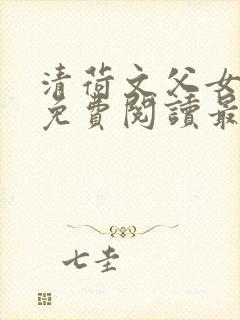 清荷文父女
免費閱讀最
七圭